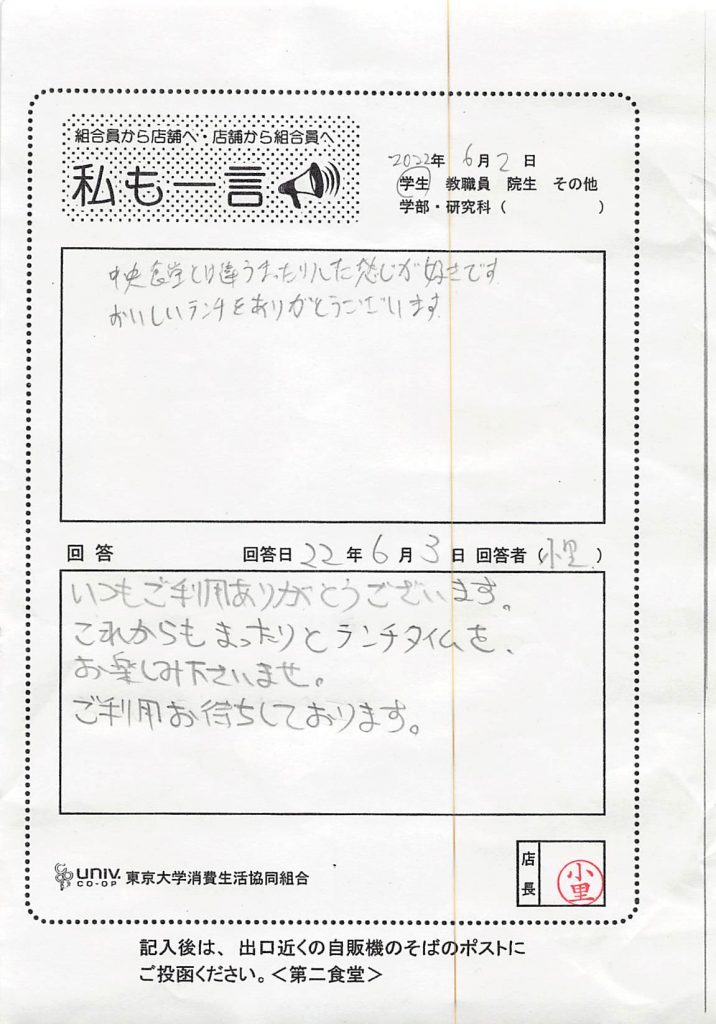 組合員から店舗へ・店舗から組合員へ
私も一言
2022年 6月 2日
学生 教職員 院生 その他
学部・研究科( )
中央食堂とは違うまったりした感じが好きです
おいしいランチをありがとうございます
回答 回答日 22年 6月 3日 回答者(小里)
いつもご利用ありがとうございます。
これからもまったりとランチタイムを、
お楽しみ下さいませ。
ご利用お待ちしております。
UNIV. CO-OP 東京大学消費生活協同組合
店長
小里
記入後は、出口近くの自販機のそばのポストに
ご投函ください。<第二食堂>